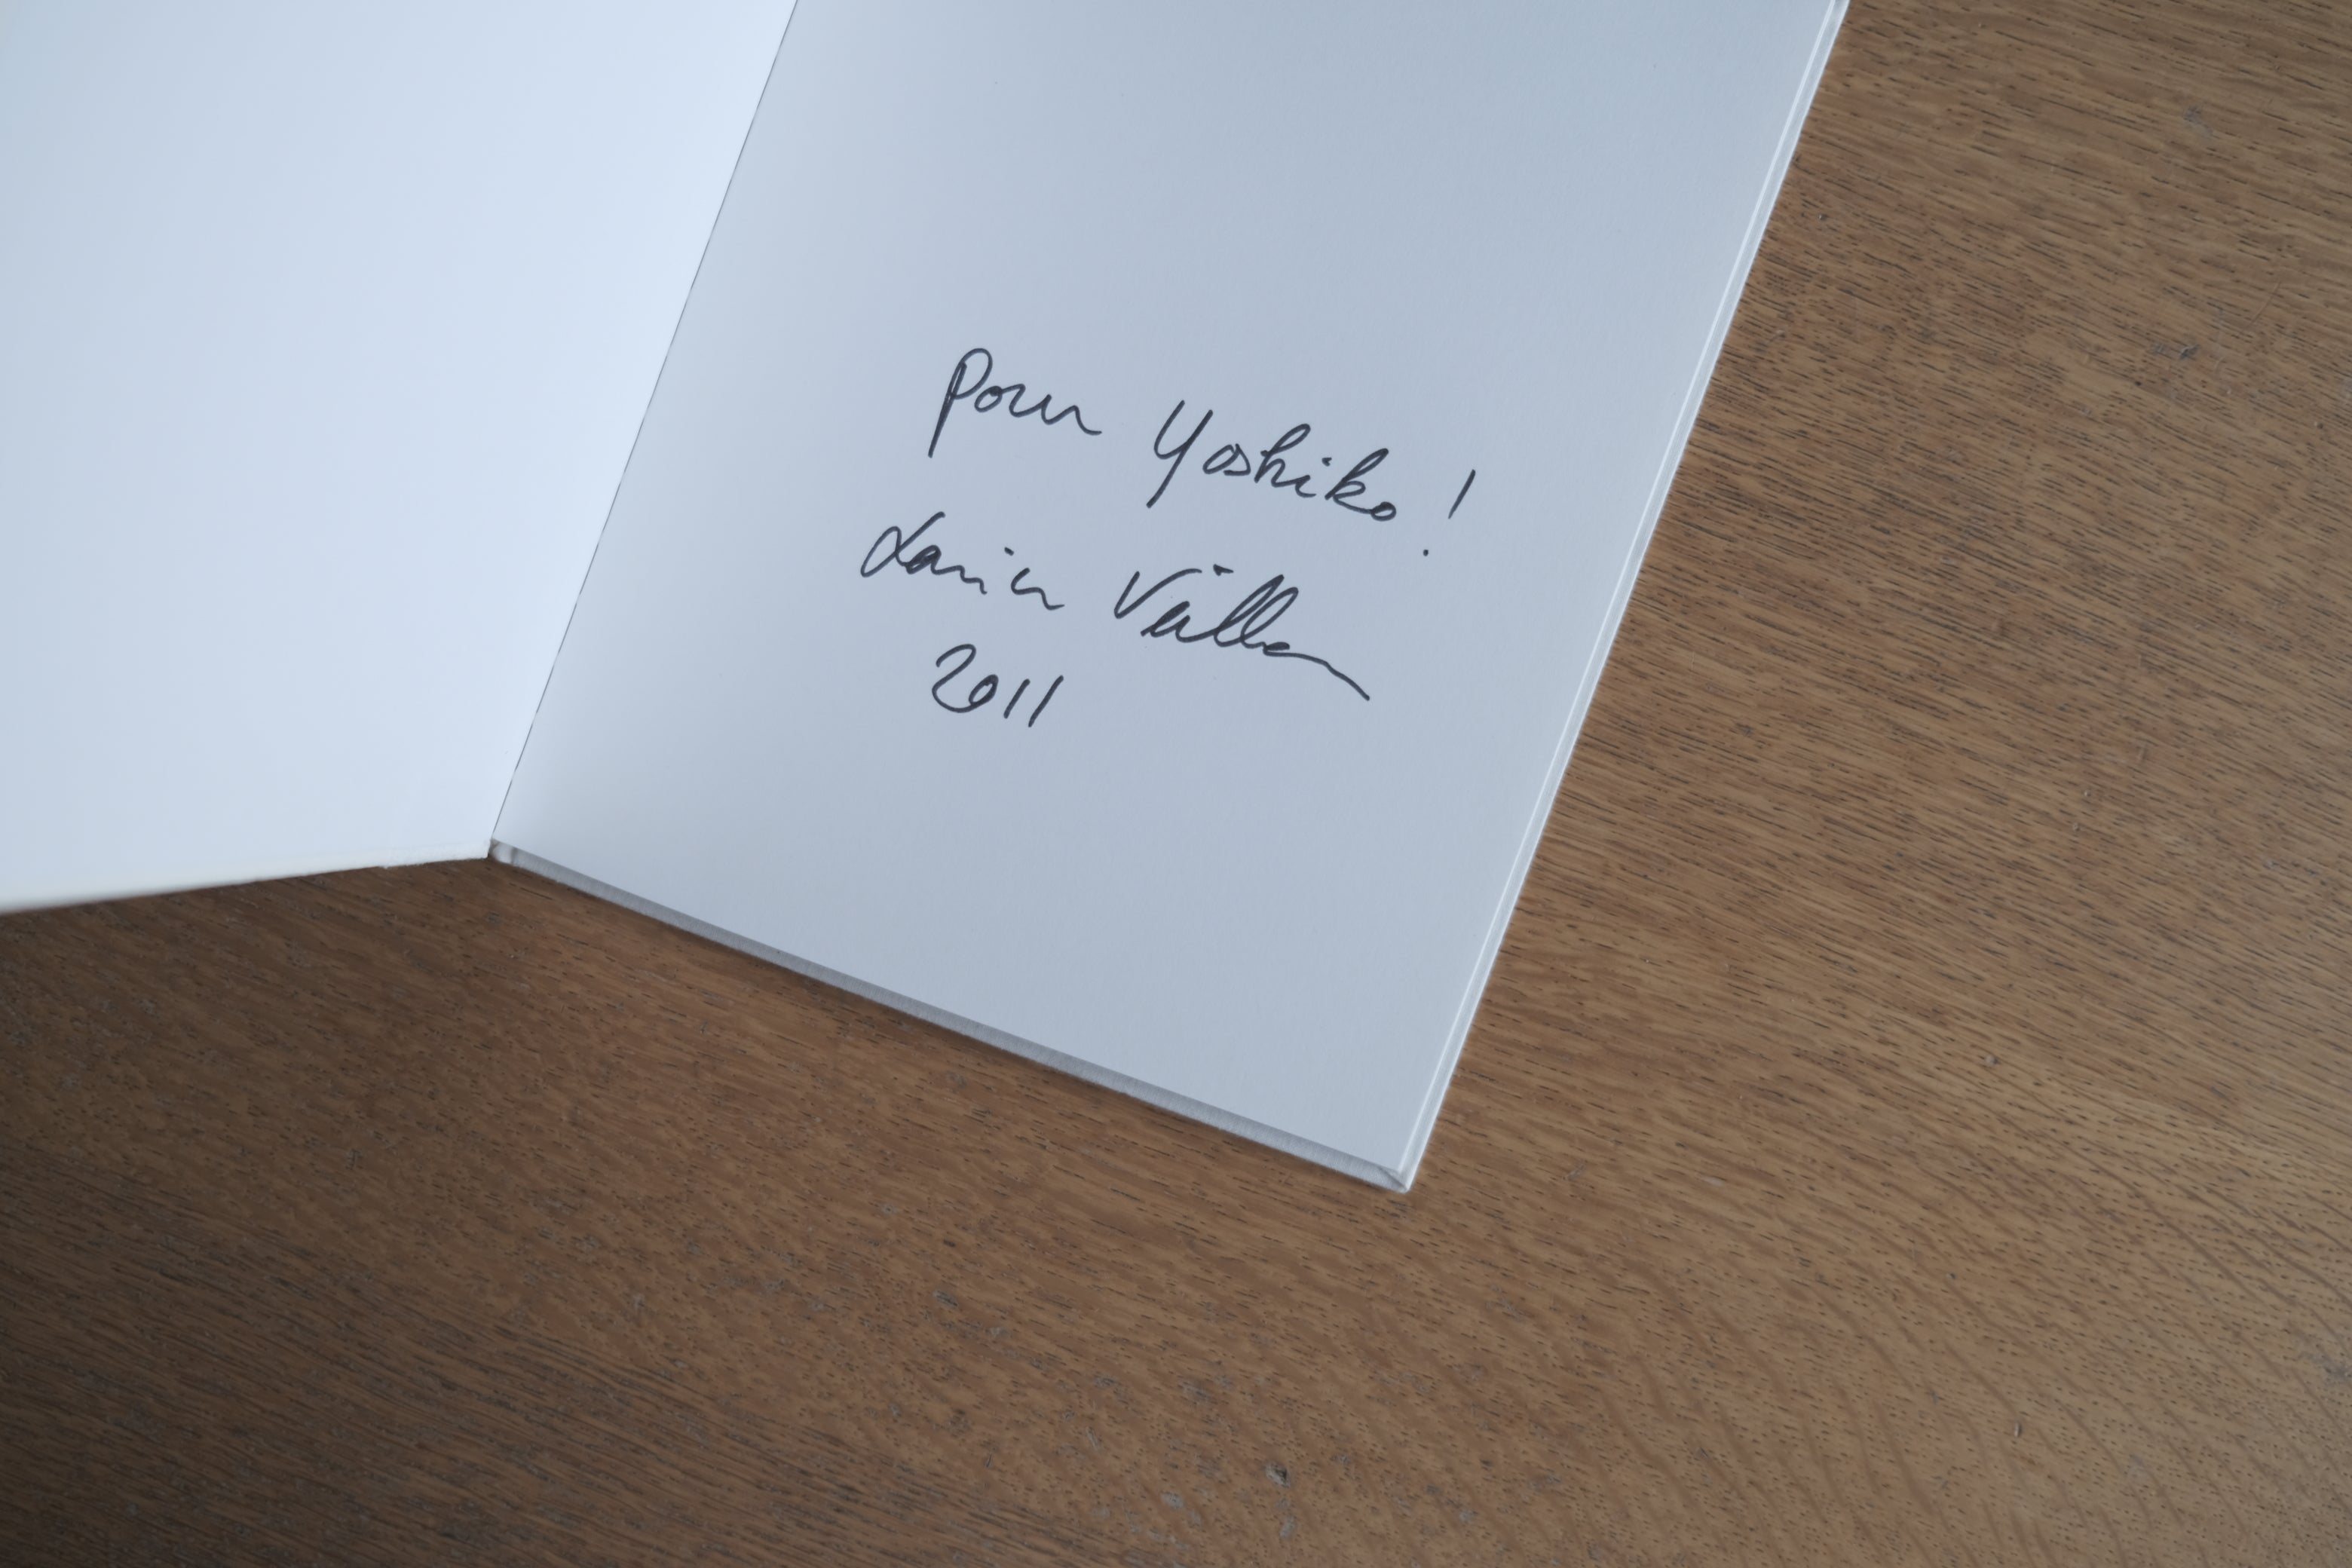 Pour Yoshiko !
Xavier Veilhan
2011